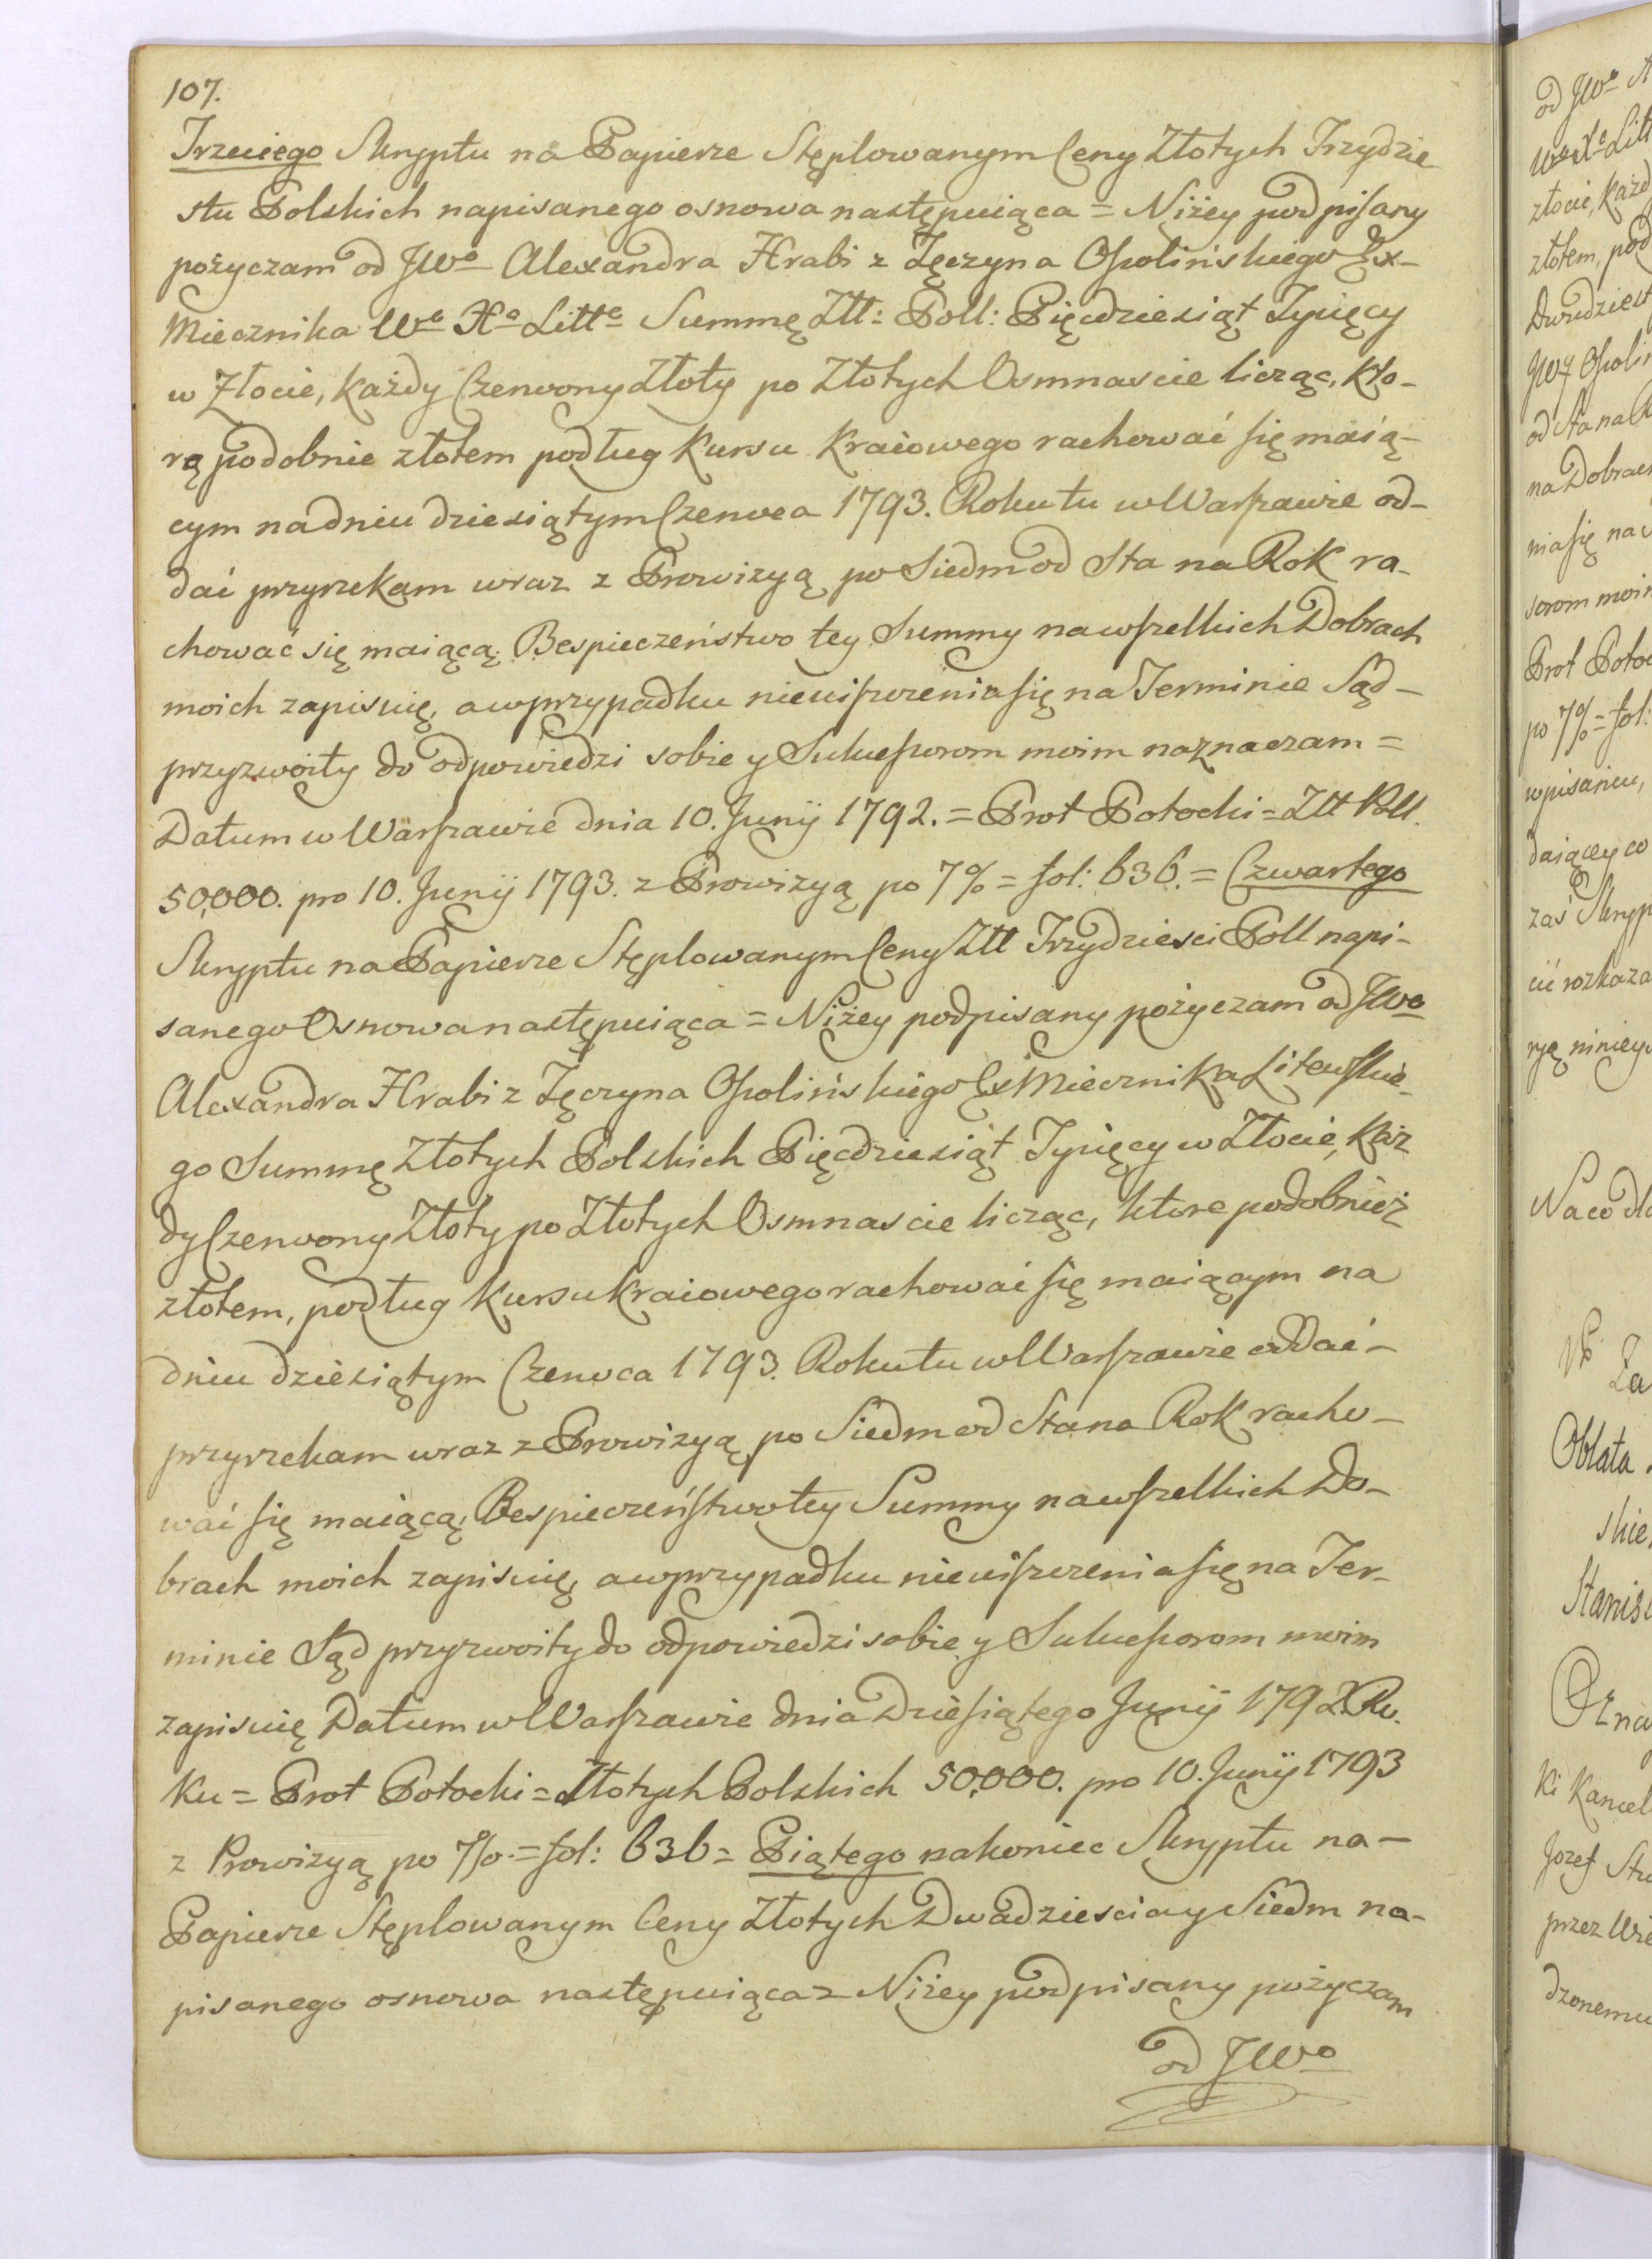 107.
Trzeciego Skryptu na Papierze Stęplowanym Ceny Złotych Trzydzie
stu Polskich napisanego osnowa następuiąca = Niżey podpisany
pożyczam od JWo Alexandra Hrabi z Tęczyna Ossolińskiego Ex-
Miecznika Wo Xa Litto Summę Złł: Poll: Pięcdziesiąt Tysięcy
w Złocie, każdy Czerwony Złoty po Złotych Osmnascie licząc, kto-
rą podobnie złotem podług Kursu Kraiowego rachować się maią-
cym na dniu dziesiątym Czerwca 1793. Roku tu w Warszawie od-
dać przyrzekam wraz z Prowizyą po Siedm od Sta na Rok ra-
chować się maiącą. Bespieczeństwo tey Summy na wszelkich Dobrach
moich zapisuię, a w przypadku nieuiszczenia się na Terminie Sąd-
przyzwoity do odpowiedzi sobie y Sukcessorom moim naznaczam =
Datum w Warszawie dnia 10. Junij 1792. = Prot Potocki = Złł Poll.
50,000. pro 10. Junij 1793. z Prowizyą po 7% = fol: 636. = Czwartego
Skryptu na Papierze Stęplowanym Ceny Złł Trzydziesci Poll napi-
sanego Osnowa następuiąca = Niżey podpisany pożyczam od JWo
Alexandra Hrabi z Tęczyna Ossolińskiego Ex Miecznika Litewskie-
go Summę Złotych Polskich Pięcdziesiąt Tysięcy w Złocie, Każ
dy Czerwony Złoty po Złotych Osmnascie licząc, ktore podobnież
złotem, podług Kursu Kraiowego rachować się maiącym na
dniu dziesiątym Czerwca 1793. Roku tu w Warszawie oddać-
przyrzekam wraz z Prowizyą po Siedm od Sta na Rok racho-
wać się maiącą, Bespieczeństwo tey Summy na wszelkich Do-
brach moich zapisuię, a w przypadku nieuiszczenia się na Ter-
minie Sąd przyzwoity do odpowiedzi sobie y Sukcessorom moim
zapisuię Datum w Warszawie dnia Dziesiątego Junij 1792. Ro.
ku = Prot Potocki = Złotych Polskich 50,000. pro 10. Junij 1793
z Prowizyą po 7%. = fol: 636 = Piątego nakoniec Skryptu na-
Papierze Stęplowanym Ceny Złotych Dwadziescia y Siedm na-
pisanego osnowa następuiąca = Niżey podpisany pożyczam
od JWo